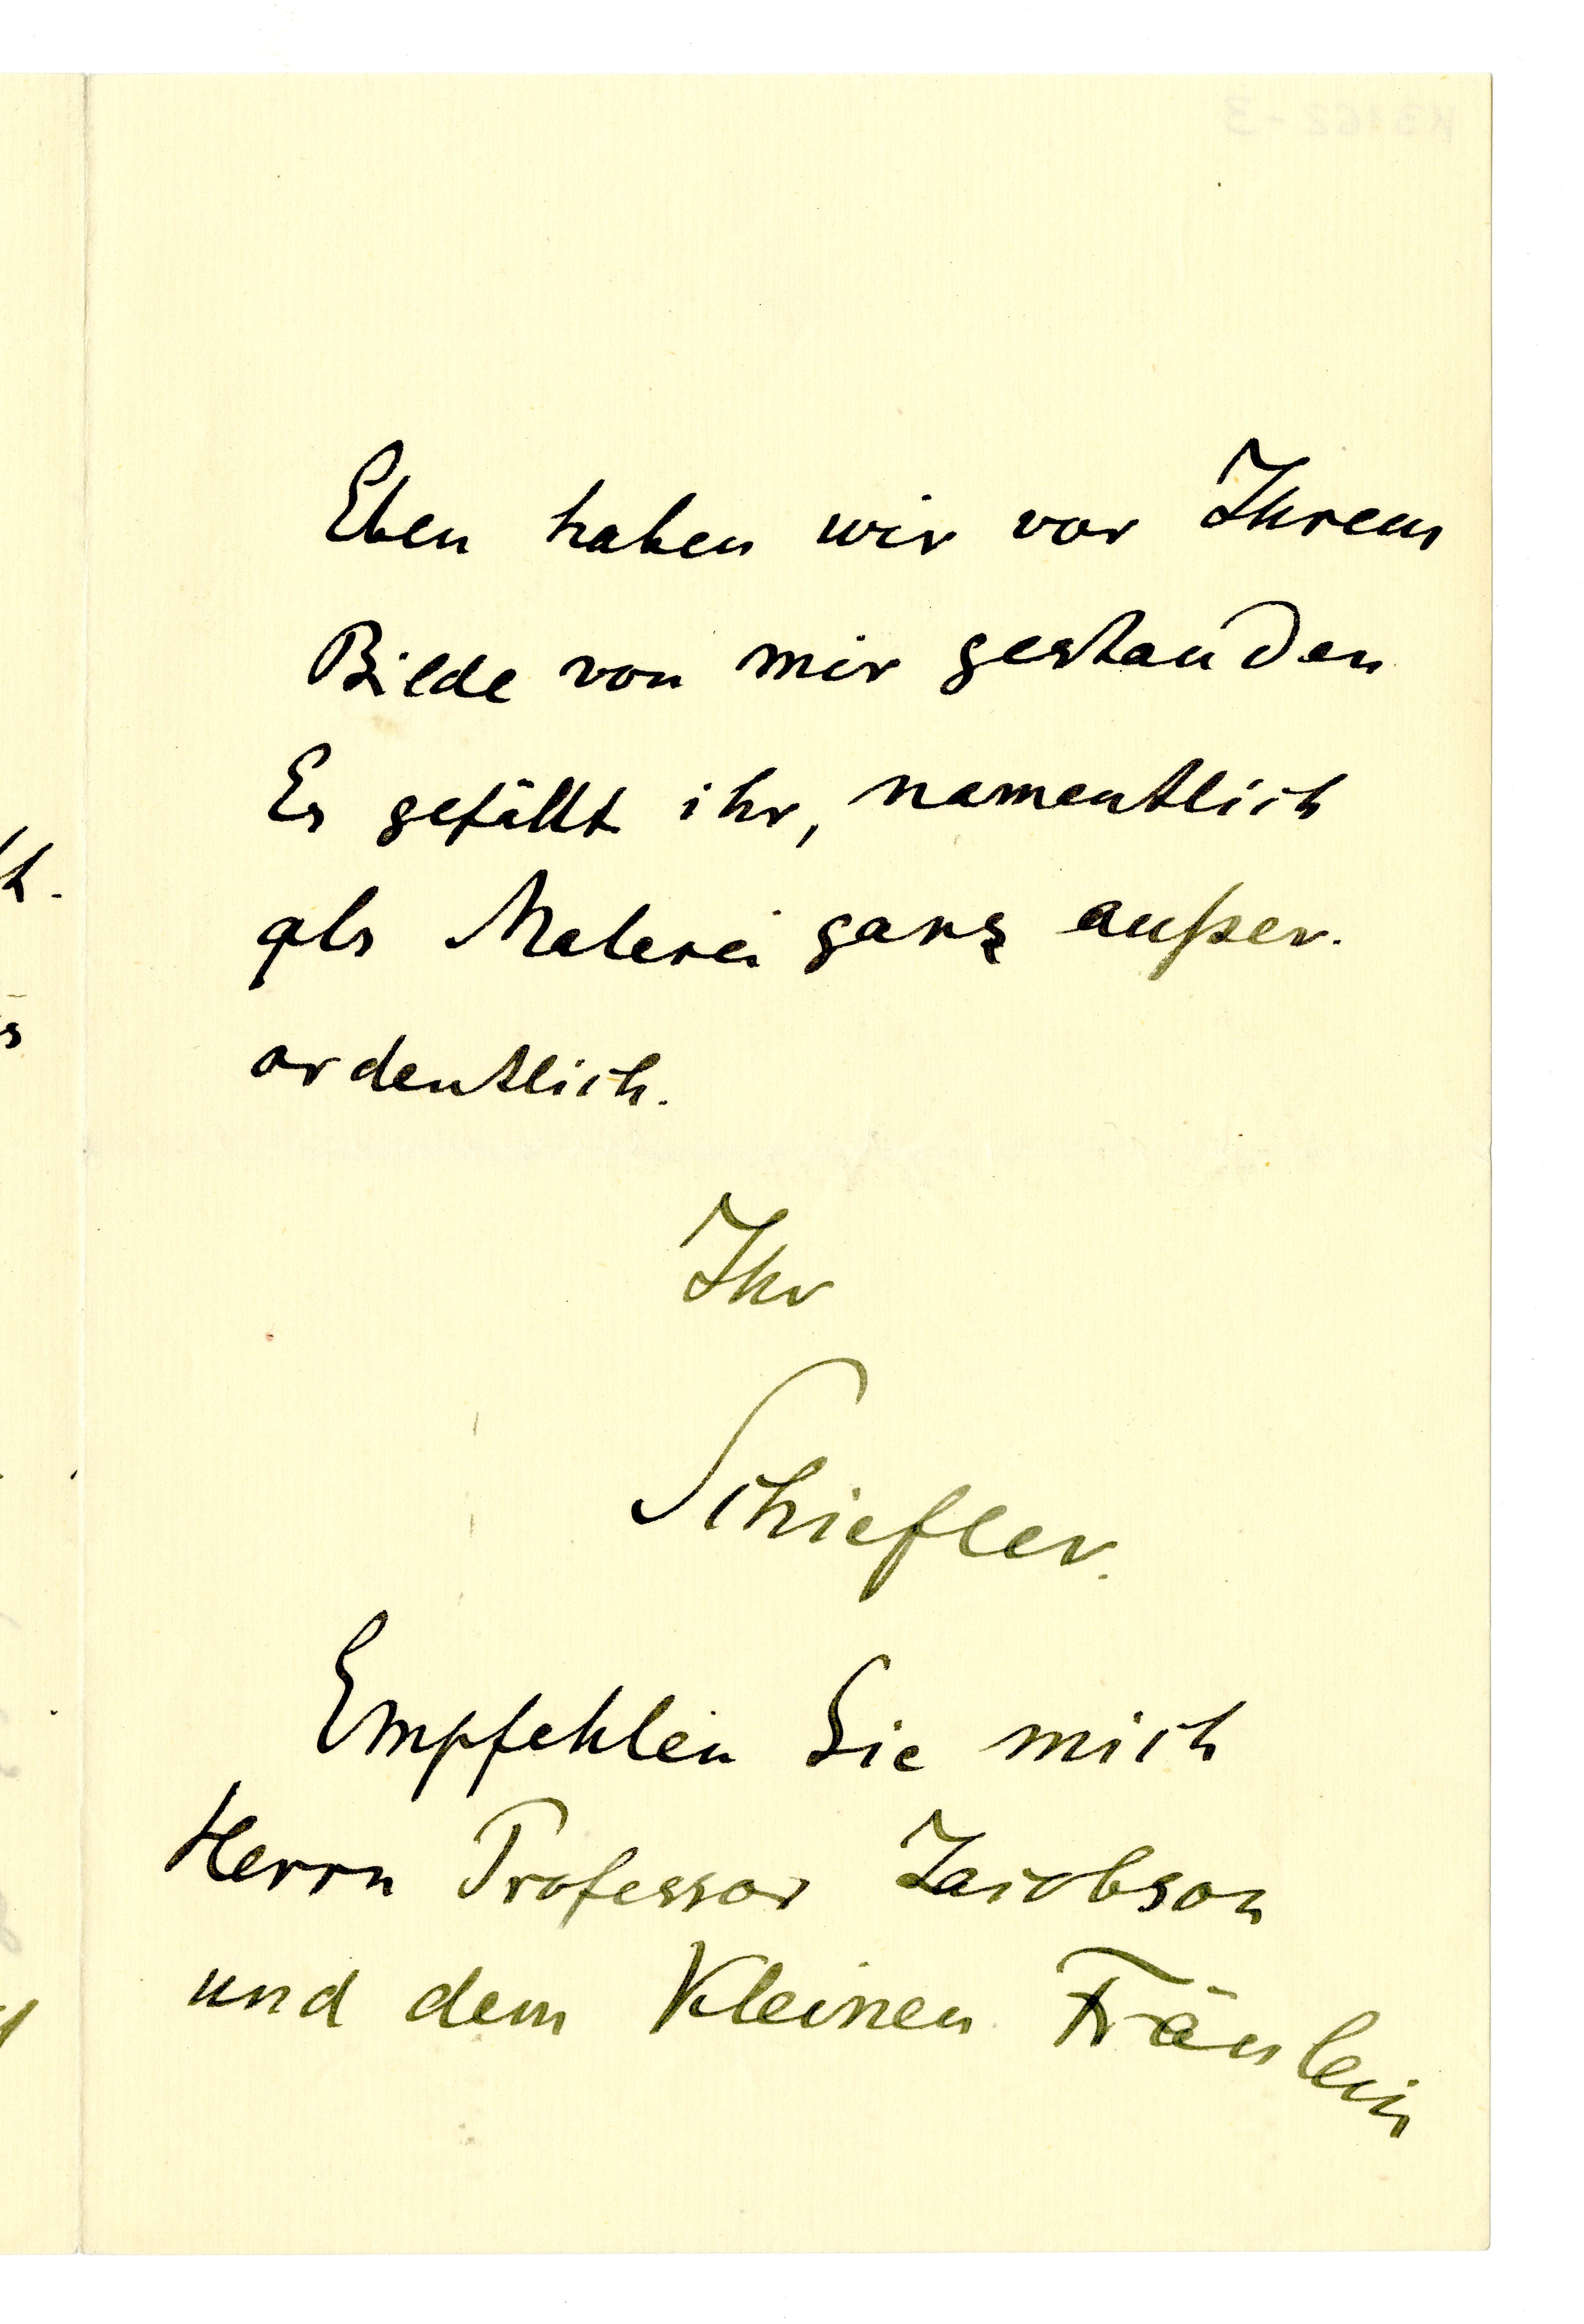 Eben haben wir vor Ihrem
Bilde von mir gestanden
Es gefällt ihr, namentlich
als Malerei ganz außer-
ordentlich.
Ihr
Schiefler.
Empfehlen Sie mich
Herrn Professor Jacobson
und dem Kleinen Fräulein